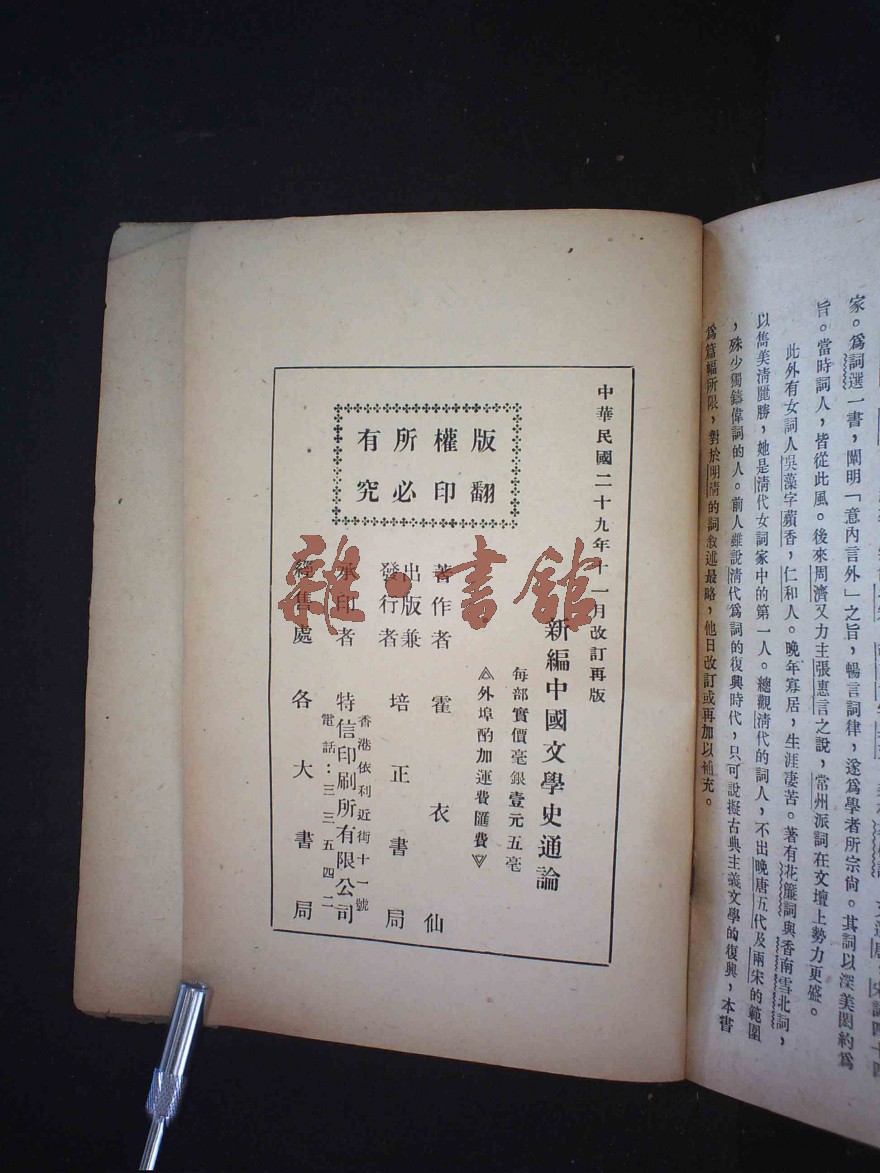 家。爲詞選一書，闡明「意內言外」之旨，暢言詞律，遂爲學者所宗尙。其詞以深美閎約爲
旨。當時詞人，皆從此風。後來周濟又力主張惠言之說，常州派詞在文壇上勢力更盛。
此外有女詞人吳藻字蘋香，仁和人。晚年寡居，生涯淒苦。著有花簾詞與香南雪北詞，
以雋美清麗勝，她是清代女詞家中的第一人。總觀清代的詞人，不出晚唐五代及兩宋的範圍
，殊少獨鑄偉詞的人。前人雖說清代爲詞的復興時代，只可說擬古典主義文學的復興，本書
爲篇幅所限，對於明清的詞敘述最略，他日改訂或再加以補充。
中華民國二十九年十一月改訂再版
新編中國文學史通論
每部實價毫銀壹元五毫
外埠酌加運費匯費
版權所有
翻印必究
著作者 霍衣仙
出版兼發行者 培正書局
承印者 特信印刷所有限公司
香港依利近街十一號
電話：三三五四二
經售處 各大書局
雜·書館